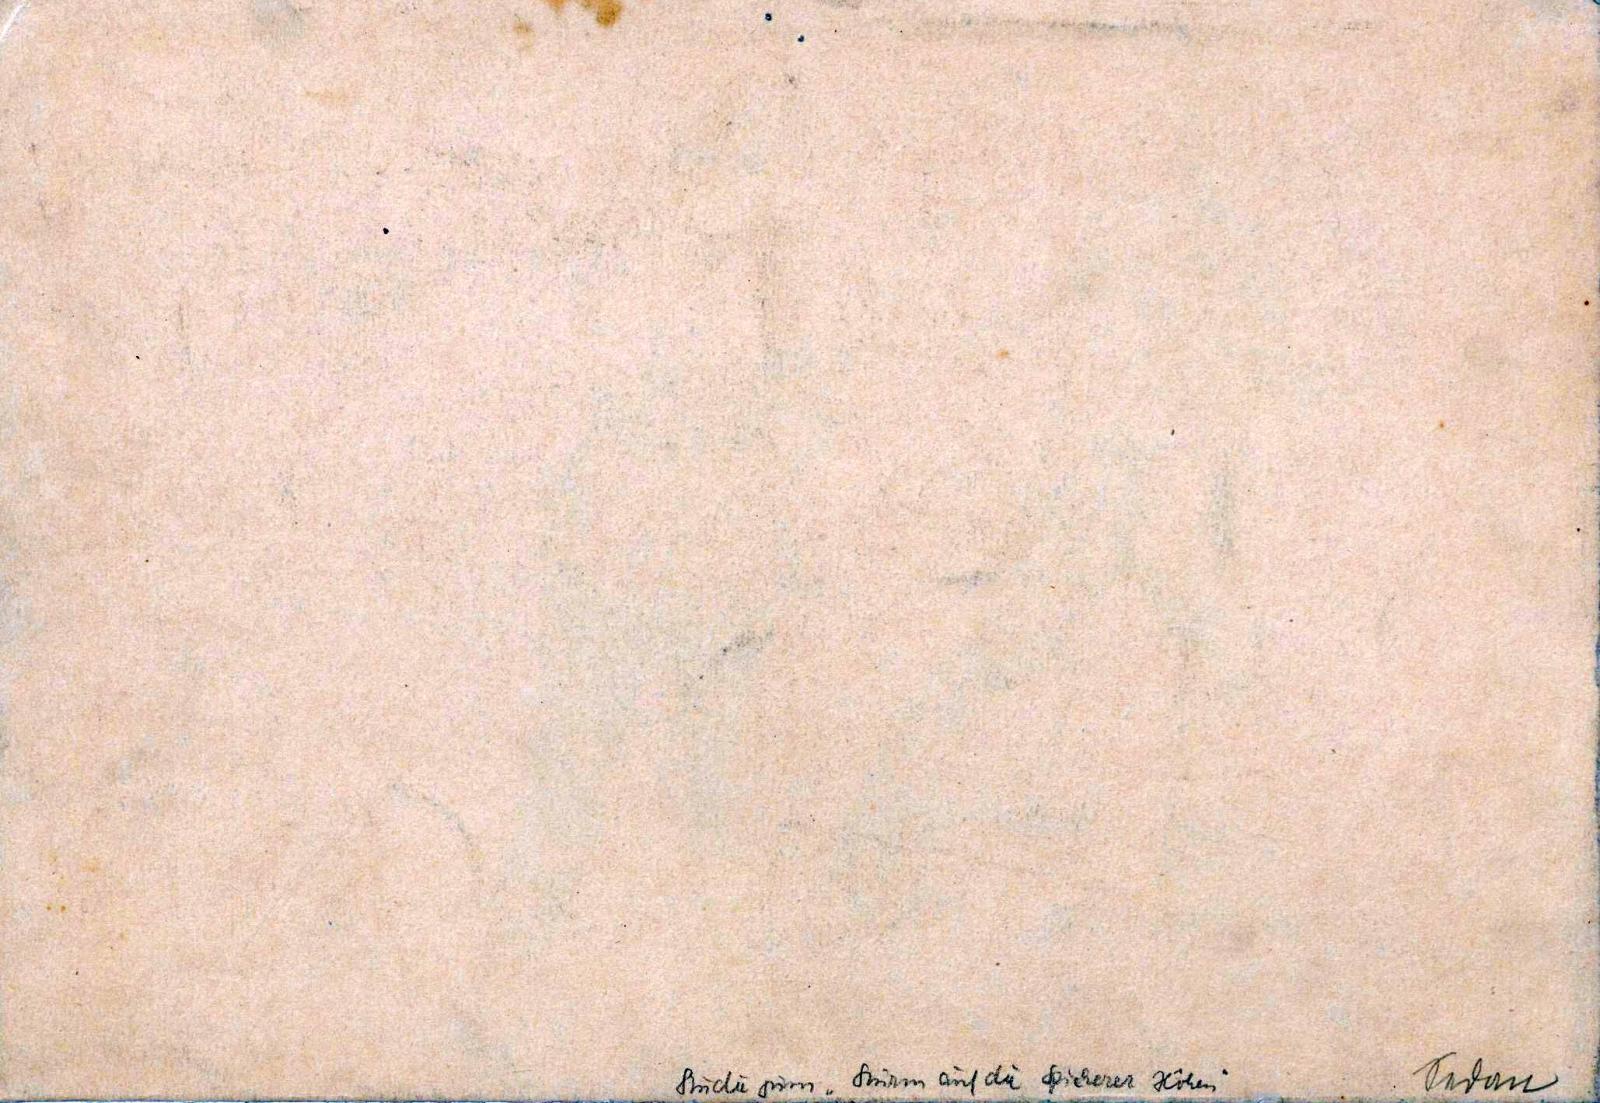 Studie zum „Sturm auf die Spicherer Höhen"
Sedan